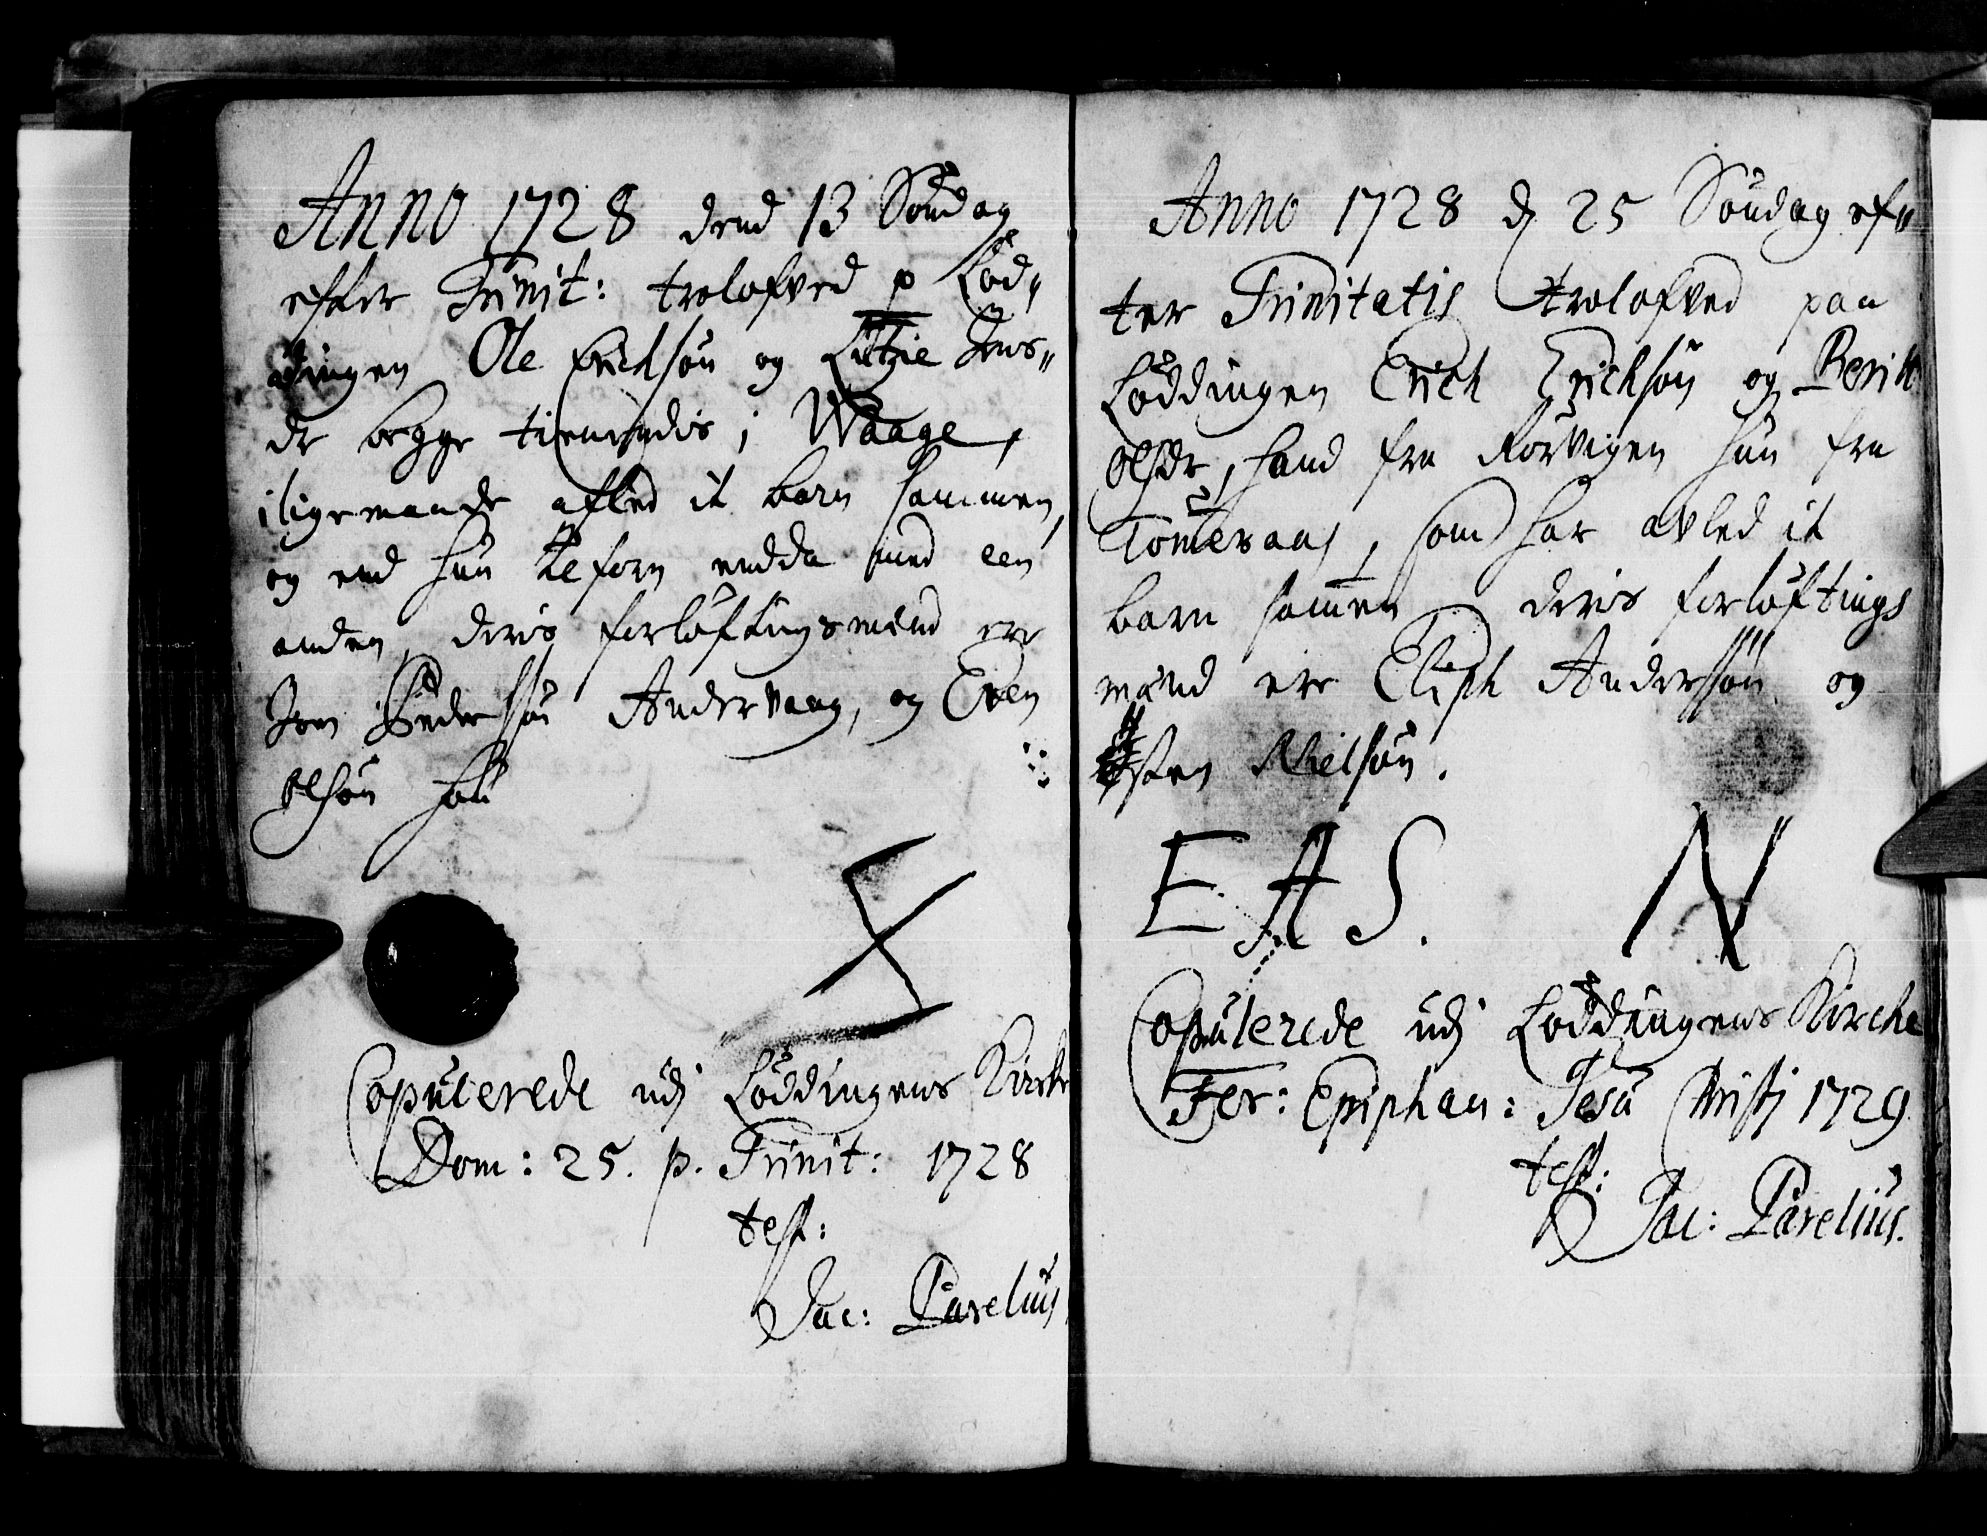 Anno 1728 dend 13 Søndag
effter Trinit: trolofved p Lød„
dingen Ole Erichsøn og Litzie Jens„
dr begge tienendis i Waage,
iligemaade afled it barn sammen,
og end hun tilforn endda med een
anden, deris forløftingsmænd ere
Jon Pedersøn Andervaag, og Even
Olsøn
Copulerede udj Løddingens Kirke
Dom: 25. p. Trinit: 1728
test:
Jac: Parelius
Anno 1728 d 25 Søndag ef„
ter Trinitatis trolofved paa
Løddingen Erich Erichsøn og Beritt
Olsdr, hand fra Rørvigen hun fra
Tømeraas, som har avled it
barn samen deris forløftings
mænd ere Eliph Andersøn og
Østen Nielsøn.
E. A S. N
Copulerede udj Løddingens Kirche
Fer: Epiphan: Jesu Christj 1729
test:
Jac: Parelius.